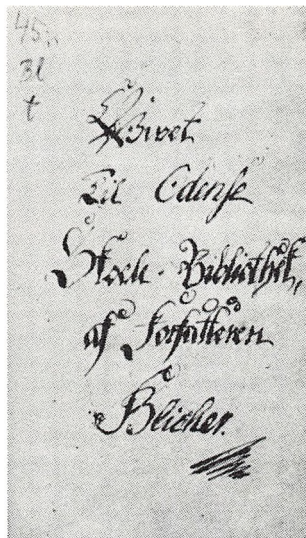 45.
Bl
t
Givet
Til Odense
Skole-Bibliothek,
af Forfatteren
Blicher.